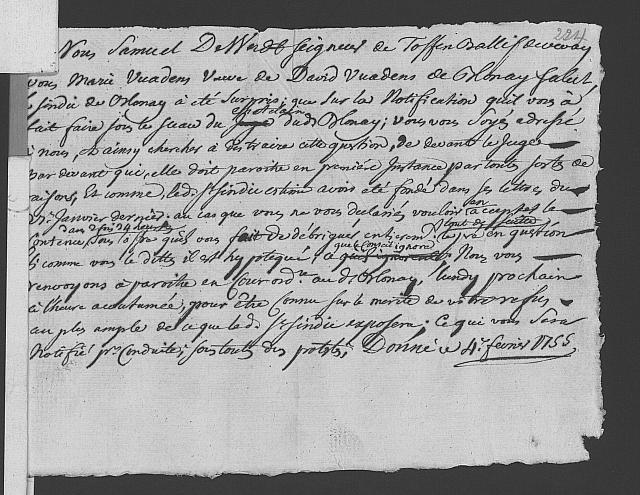 224
Nous Samuel De Werdt seigneur de Toffen Ballif de vevay
vous Marie Vuadens Veuve de David Vuadens de Blonay Salut,
le sindic de Blonay à été surpris, que sur la Notification qu'il vous à
chatelain
fait faire sous le sceau du Juge dud. Blonay; vous vous soyés adressé
à nous, & ainsy chercher à distraire cette question, de devant le Juge
par devant qui, elle doit paroitre en première Instance par toute sorte de
raisons, Et comme, led. Sr. sindic estime avoir été fondé dans ses lettres du
Janvier dernier, au cas que vous ne vous declariés vouloir accepter le
dans 24 heures
sous qu'il vous fait de debriguer entierem. en question
que le Conseil ignore
& comme vous le dittes il est hypotequé à Nous vous
renvoyons à paroitre en Cour ord.re aud. Blonay, lundy prochain
à l'heure accutumée, pour être Connu sur le merite de votre refus
au plus ample de ce que led. Sr. Sindic exposera; Ce qui vous sera
Notifié pr. Conduite; sous toutes dues protestes. Donné ce 4e. fevrier 1755